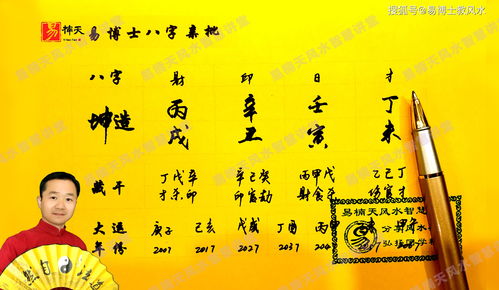 搜狐号@易博士教风水
楠天 易博士八字亲批
八字 财 印 日 才
坤造 丙 辛 壬 丁
戌 丑 寅 未
藏干 丁戊辛 辛己癸 丙甲戊 乙己丁
才杀印 印官劫 财食杀 伤官才
大运 庚子 己亥 戊戌 丁酉 丙申
年份 2007 2017 2027 2037
易楠天风水智慧